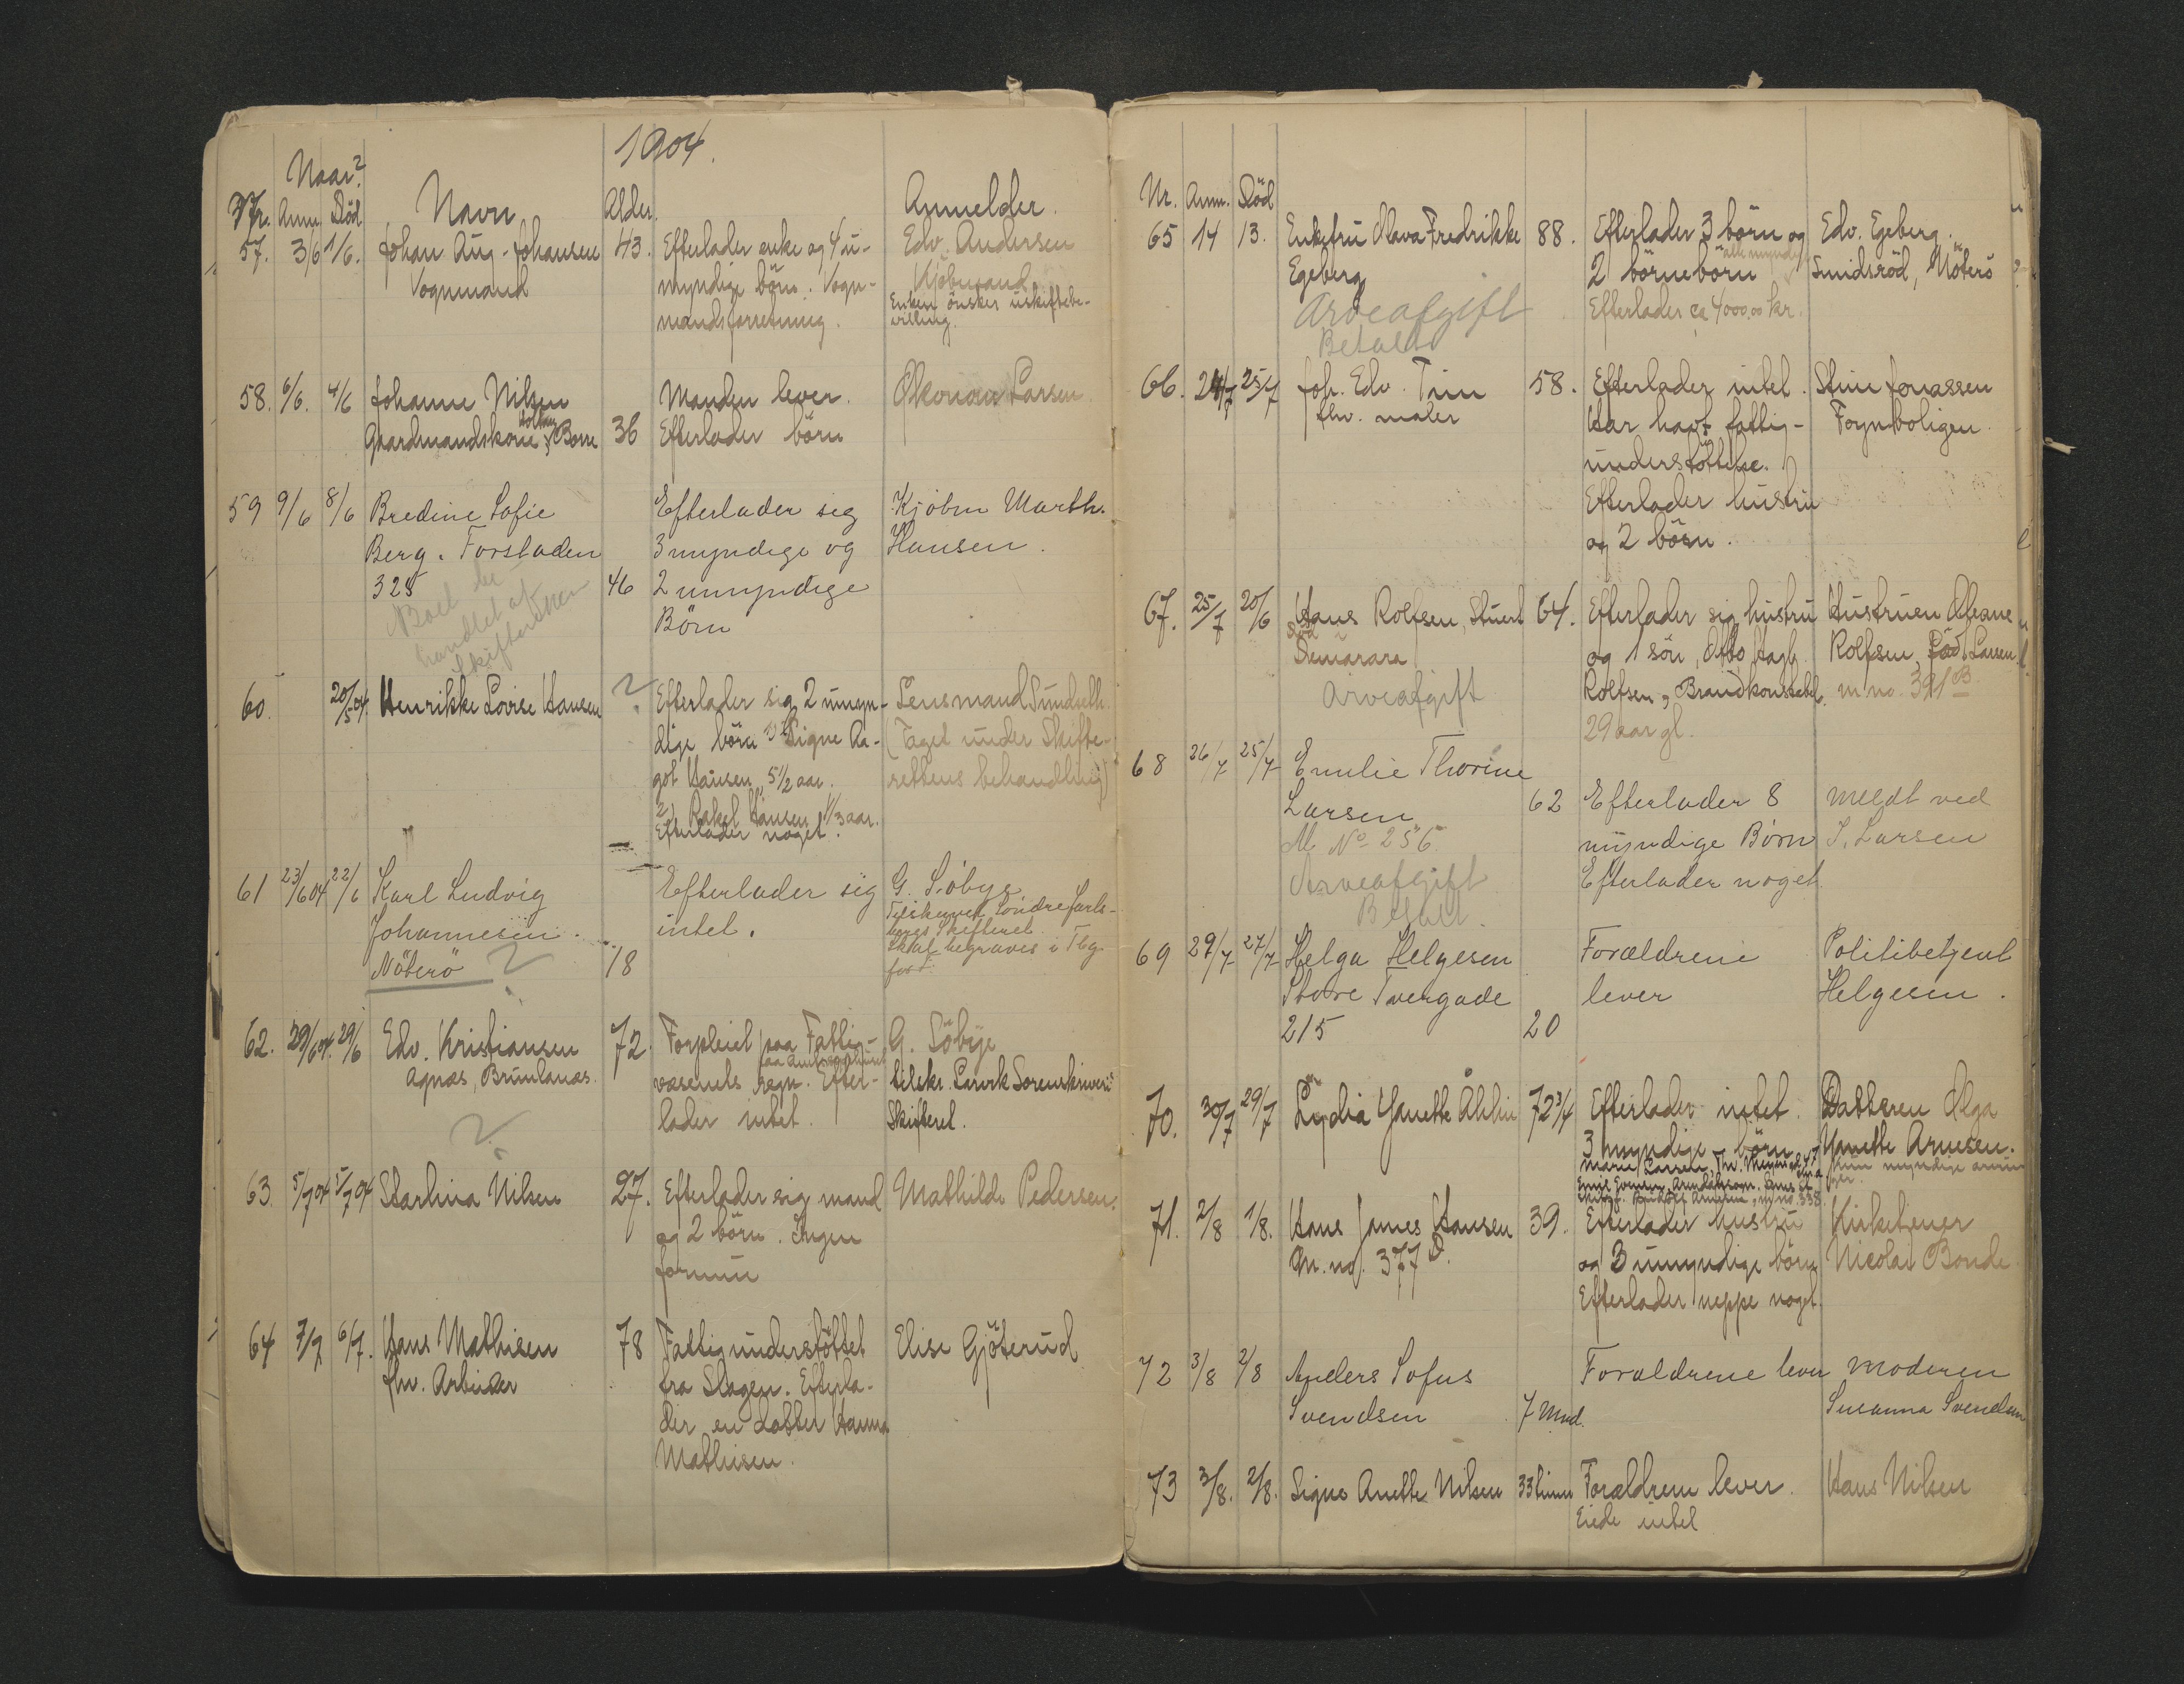 1904.
Naar?
Nr. Anm Död Navn Alder. Anmelder.
57. 3/6 1/6. Johan Aug. Johansen 43. Efterlader enke og 4 u- Edv. Andersen
Vognmand myndige börn. Vogn- Kjöbmand
mandsforretning. Enken önsker uskiftebe-
villing.
58. 6/6. 4/6 Johanne Nilsen Manden lever.  Larsen
Gaardmandskone, Borre 36 Efterlader börn
59 9/6 8/6 Bredine Sofie Efterlader sig Kjöbm Marth.
Berg. Forstaden 3 myndige og Hansen.
325 46 2 umyndige
Boet be Börn
handlet af
Skifteretten
60. 20/5 04. Henrikke Lovise Hansen ? Efterlader sig 2 umyn- Lensmand
dige börn 1) Signe Aa- (Taget under Skifte-
got Hansen, 5 1/2 aar. rettens behandling)
2) Rakel Hansen 1/3 aar.
Efterlader noget.
61 23/6 04 22/6 Karl Ludvig Efterlader sig G. Söbye
Johannesen. intet. Tilskrevet Söndre Jarls-
Nöterö ? 18 bergs Skifteret
skal begraves i Tbg.
62. 29/6 04. 29/6 Edv. Kristiansen 72. Forpleiet paa Fattig- G. Söbye
Agnæs, Brunlanæs. væsenets regn. Efter- tilskr. Larvik Sorenskriveri
? lader intet. Skifteret.
63 5/7 04 5/7 04 Starlina Nilsen 27. Efterlader sig mand Mathilde Pedersen.
og 2 börn. Ingen
formue
64 7/7 6/7. Hans Mathisen 78 Fattigunderstöttet Elise Gjöterud
fhv. Arbeider fra Slagen. Efterla-
der en datter Hanna
Mathisen.
Nr. Anm. Död
65 14 13. Enkefru Olava Fredrikke 88. Efterlader 3 börn og Edv. Egeberg.
Egeberg 2 börnebörn alle myndige Smidsröd, Nöterö
Arveafgift Efterlader ca 4000,00 kr.
Betalt
66. 24/7 25/7 Joh. Edv. Tim 58. Efterlader intet. Stine Jonassen
fhv. maler Har havt fattig- Foynboligen.
understöttelse.
Efterlader hustru
og 2 börn.
67. 25/7 20/6 Hans Rolfsen, Stuert 64. Efterlader sig hustru Hustruen Oleane
död i og 1 sön, Otto Hagb. Rolfsen, född Larsen.
Demarara Rolfsen, Brandkonstabel. m no. 391 B
Arveafgift 29 aar gl.
68 26/7 25/7 Emilie Thorine
Larsen 62 Efterlader 8 meldt ved
M No 256. myndige Börn S. Larsen
Arveafgift Efterlader noget
Betalt.
69 29/7 27/7 Helga Helgesen Forældrene Politibetjent
Store Tvergade lever Helgesen.
215 20
70. 30/7 29/7 Lydia Yanette Åhlin 72 3/4 Efterlader intet. Datteren Olga
3 myndige börn Yanette Arnesen.
71. 2/8 1/8. Hans James Hansen 39. Efterlader hustru Kirketjener
M. no. 377 D. og 3 umyndige börn Nicolai Bonde
Efterlader neppe noget.
72 3/8 2/8 Anders Sofus Forældrene lever Moderen
Svendsen 7 Mnd. Susanna Svendsen
73 3/8. 2/8. Signe Anette Nilsen 33 timer Forældrene lever. Hans Nilsen
Eiede intet